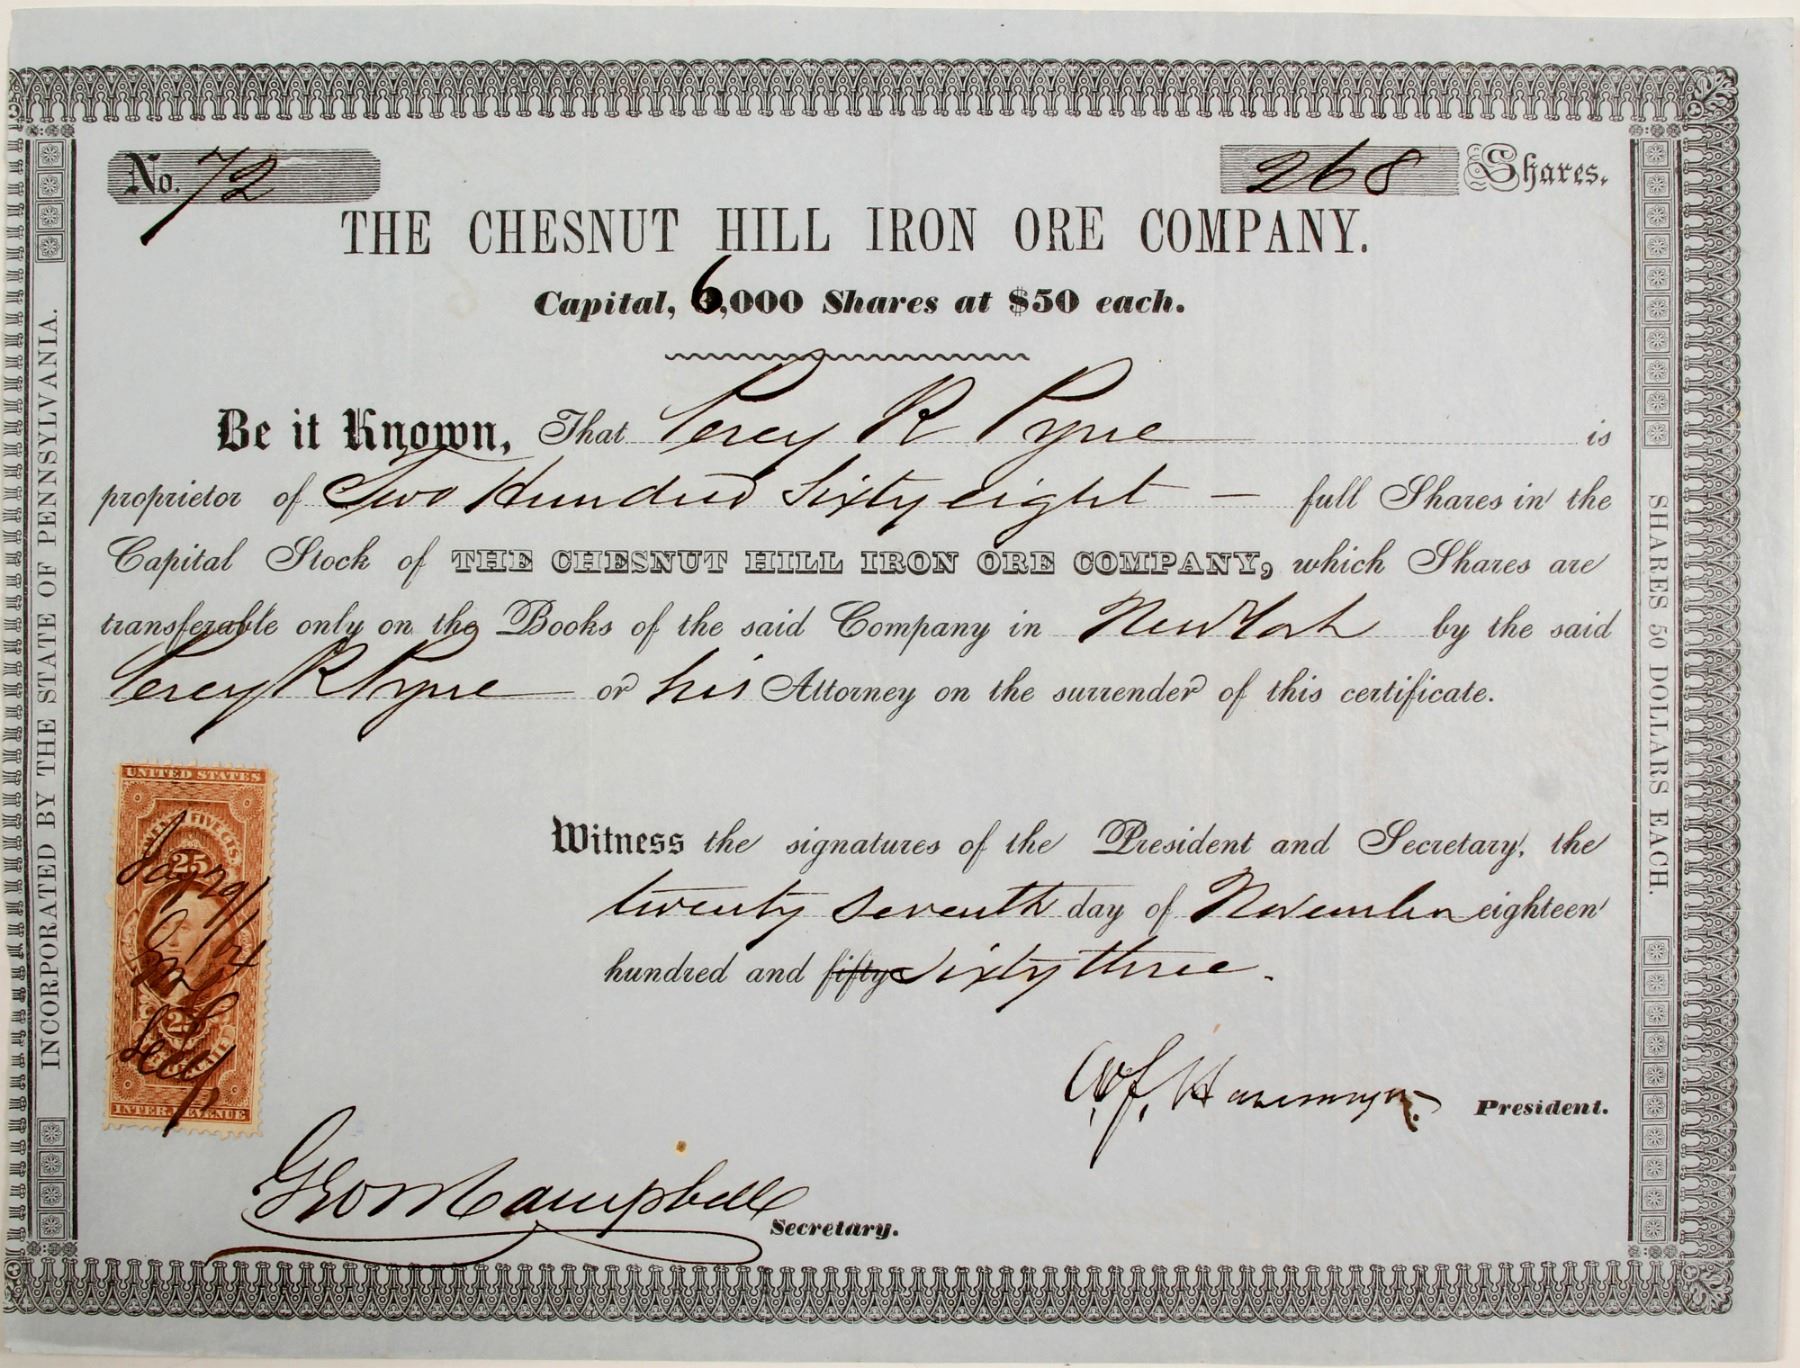 No. 72
268 Shares.
THE CHESNUT HILL IRON ORE COMPANY.
Capital, 6,000 Shares at $50 each.
Be it Known, That Percy R Pyne is
proprietor of Two Hundred Sixty eight — full Shares in the
Capital Stock of THE CHESNUT HILL IRON ORE COMPANY, which Shares are
transferable only on the Books of the said Company in New York by the said
Percy R Pyne or his Attorney on the surrender of this certificate.
Witness the signatures of the President and Secretary, the
twenty seventh day of November eighteen
hundred and fifty sixty three.
President.
Geo W Campbell
Secretary.
INCORPORATED BY THE STATE OF PENNSYLVANIA.
SHARES 50 DOLLARS EACH.
UNITED STATES
25
25
INTER. REVENUE